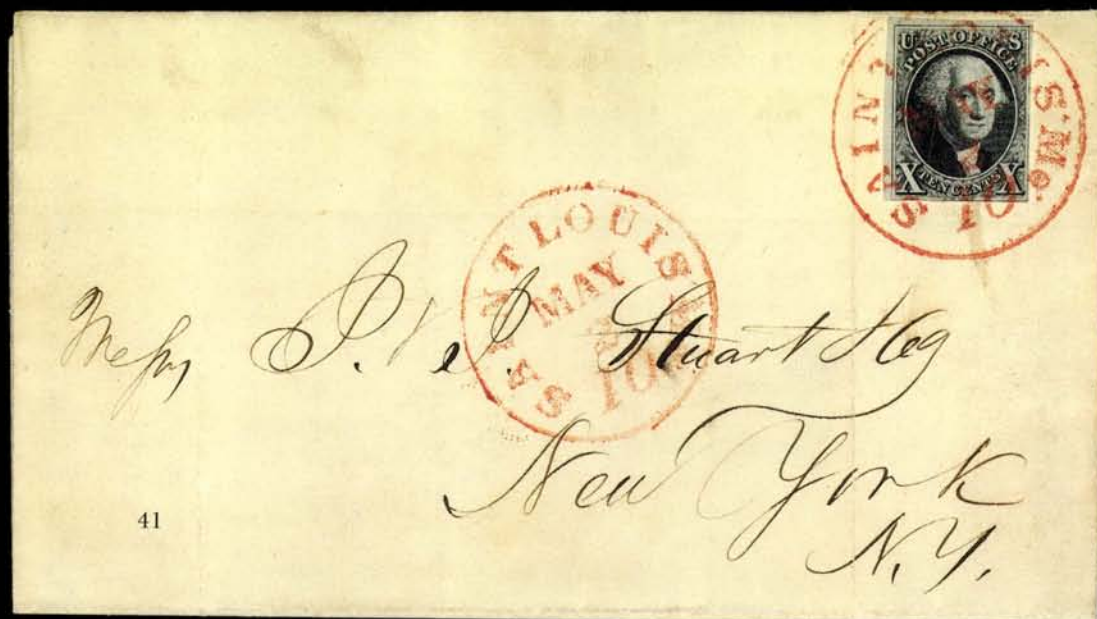 U S
POST OFFICE
X TEN CENTS X
SAINT LOUIS Mo.
10
SAINT LOUIS
MAY
10
Messrs J. & J. Stuart & Co
New York
N.Y.
41